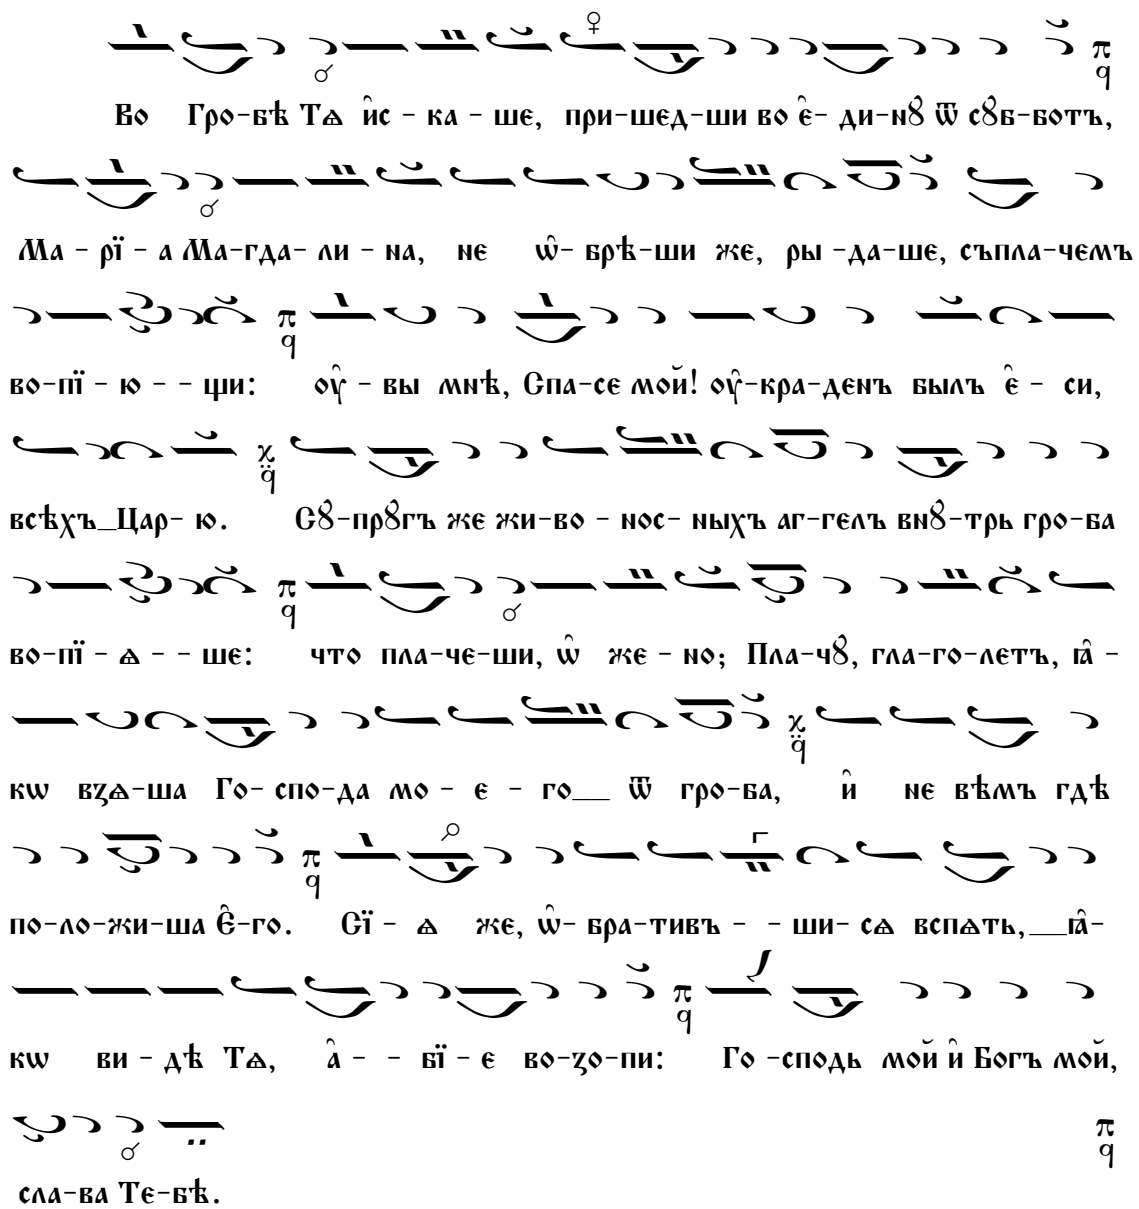 Во Гро-бѣ Тѧ и҆с - ка - ше, при-шед-ши во є҆- ди-нꙋ ѿ сꙋб-ботъ,
Ма - рї - а Ма-гда- ли - на, не ѡ҆- брѣ-ши же, ры -да-ше, съпла-чемъ
во-пї - ю - - щи: оу҆ - вы мнѣ, Спа-се мой! оу҆-кра-денъ былъ є҆ - си,
всѣхъ__Цар- ю. Сꙋ-прꙋгъ же жи-во - нос- ныхъ аг-гелъ внꙋ-трь гро-ба
во-пї - ѧ - - ше: что пла-че-ши, ѡ҆ же - но; Пла-чꙋ, гла-го-летъ, ꙗ҆ -
кѡ взѧ-ша Го- спо-да мо - е - го__ ѿ гро-ба, и҆ не вѣмъ гдѣ
по-ло-жи-ша Є҆-го. Сї - ѧ же, ѡ҆- бра-тивъ - - ши- сѧ вспѧть,__ꙗ҆-
кѡ ви - дѣ Тѧ, а҆ - - бї - е во-зо-пи: Го -сподь мой и҆ Богъ мой,
сла-ва Те-бѣ.